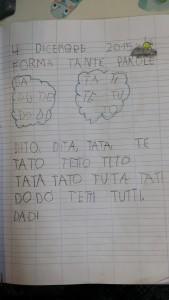 4 DICEMBRE 2015
FORMA TANTE PAROLE
DA TA TE
DE TI TO
DO DI TU
DITO, DITA, TATA, TE
TATO TETTO TITO
TATA TATO TUTA TATI
DODO TETTI TUTTI.
DADI